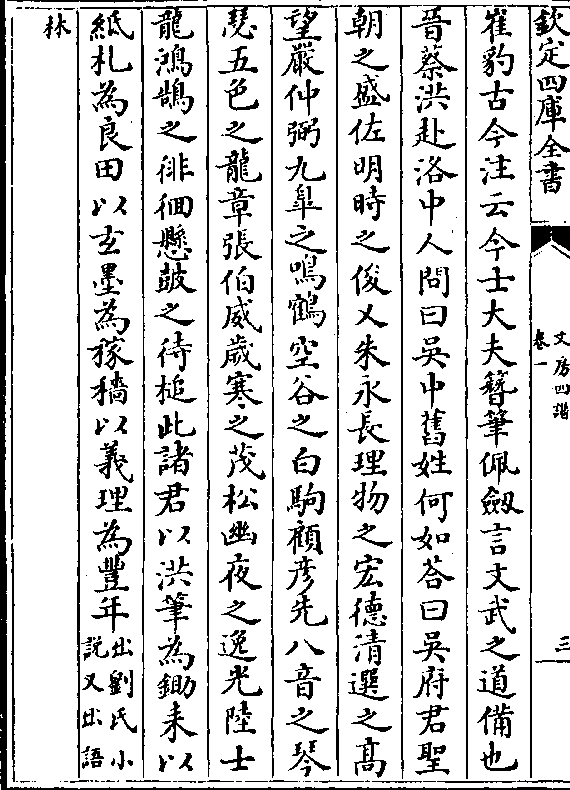 欽定四庫全書
文房四譜
卷一
三
崔豹古今注云今士大夫簪筆佩劔言文武之道備也
晉蔡洪赴洛中人問曰吳中舊姓何如荅曰吳府君聖
朝之盛佐明時之俊乂朱永長理物之宏德清選之髙
望嚴仲弼九臯之鳴鶴空谷之白駒顧彦先八音之琴
瑟五色之龍章張伯威歲寒之茂松幽夜之逸光陸士
龍鴻鵠之徘徊懸鼓之待槌此諸君以洪筆為鋤耒以
紙札為良田以𤣥墨為稼穡以義理為豐年出劉氏小
說又出語
林